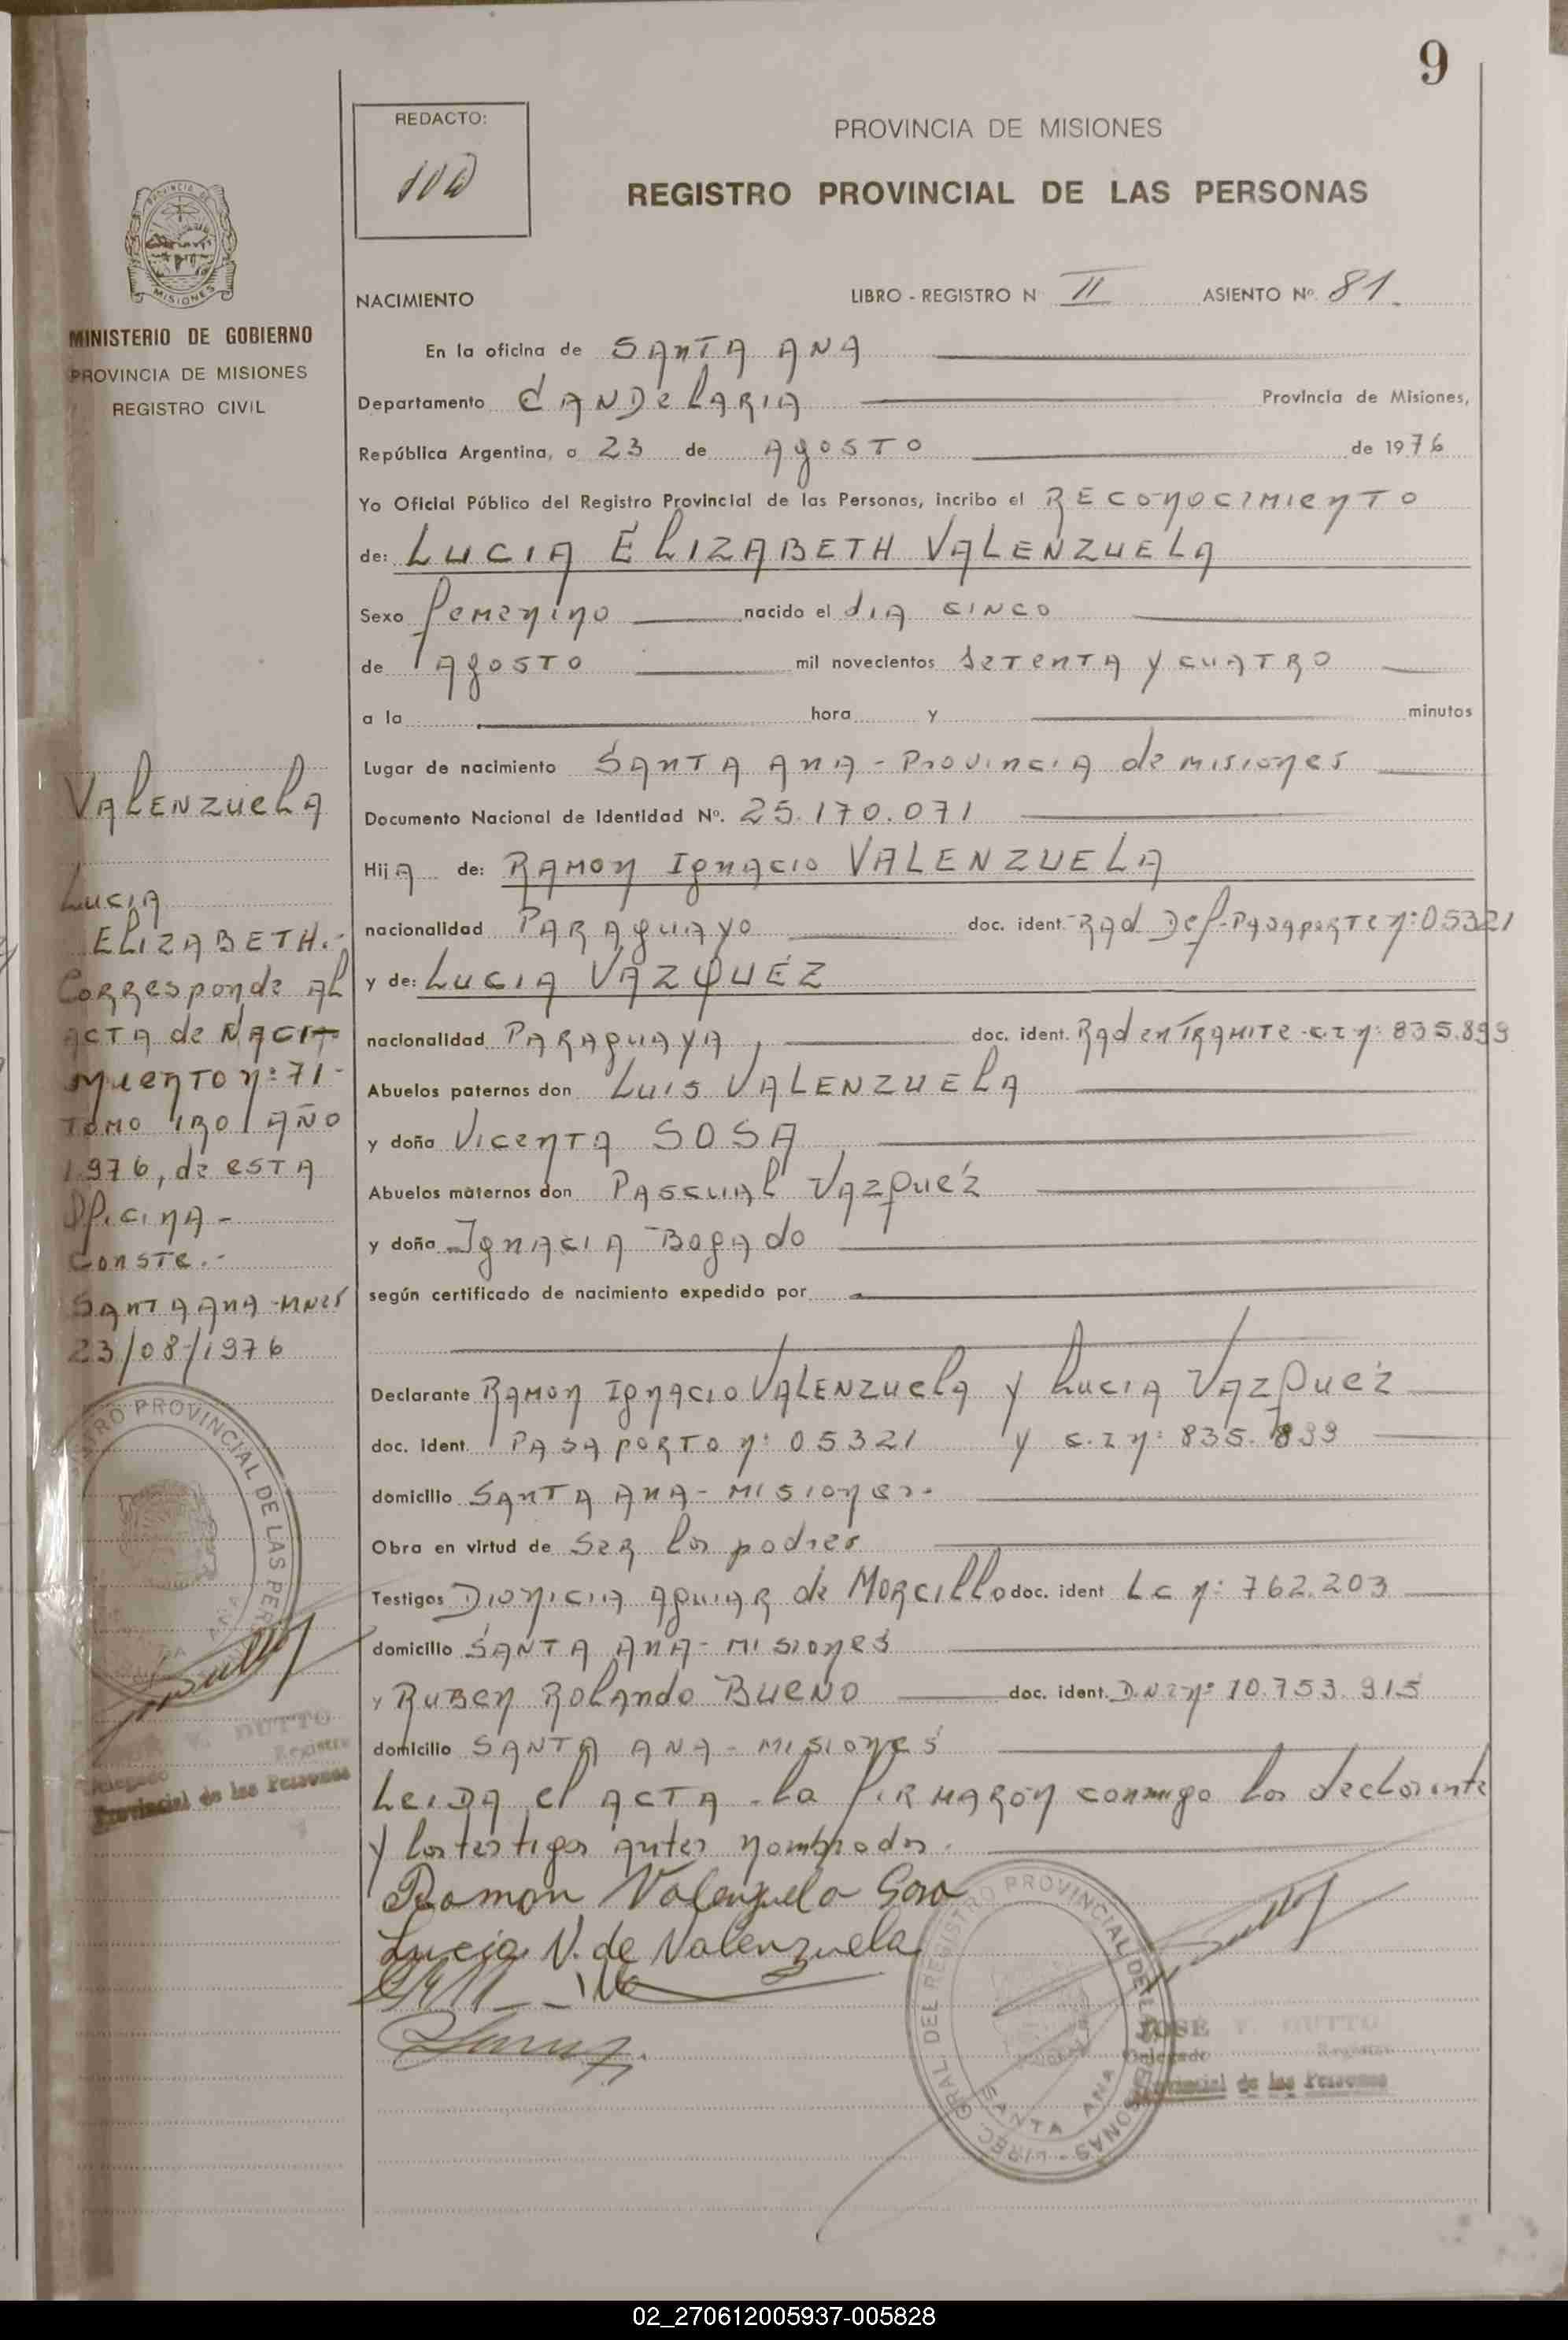 9
REDACTO:
PROVINCIA DE MISIONES
REGISTRO PROVINCIAL DE LAS PERSONAS
NACIMIENTO LIBRO - REGISTRO N II ASIENTO Nº. 81.
En la oficina de SANTA ANA
Departamento CANDELARIA Provincia de Misiones,
República Argentina, a 23 de Agosto de 1976
Yo Oficial Público del Registro Provincial de las Personas, incribo el RECONOCIMIENTO
de: LUCIA ELIZABETH VALENZUELA
Sexo femenino nacido el dia CINCO
de Agosto mil novecientos setenta y cuatro
a la hora y minutos
Lugar de nacimiento SANTA ANA - Provincia de misiones
Documento Nacional de Identidad Nº. 25.170.071
Hija de: RAMON Ignacio VALENZUELA
nacionalidad PARAguayo doc. ident. Rad Def-Pasaporte nº: 05321
y de: LUCIA VAZQUÉZ
nacionalidad PARAguaya, doc. ident. Rad en TRAMITE - c.I nº: 835.899
Abuelos paternos don Luis VALENZUELA
y doña Vicenta SOSA
Abuelos maternos don PASCUAL VAZQUÉZ
y doña Ignacia Bogado
según certificado de nacimiento expedido por
Declarante RAMON Ignacio VALENZUELA y Lucia VAZQUÉZ
doc. ident. PASAPORTO nº: 05321 y c.I nº: 835.899
domicilio SANTA ANA - MISIONES.
Obra en virtud de SER los padres
Testigos DIONICIA AGUIAR de MORCILLO doc. ident L.C nº: 762.203
domicilio SANTA ANA - MISIONES
y RUBEN ROLANDO BUENO doc. ident. D.N.I nº: 10.753.915
domicilio SANTA ANA - MISIONES
LEIDA el ACTA la FIRMARON conmigo los declarante
y los testigos antes nombrados.
Ramon Valenzuela Sosa
Lucia V. de Valenzuela
DIREC. GRAL DEL REGISTRO PROVINCIAL DE LAS PERSONAS
SANTA ANA
JOSE V. DUTTO
Delegado Registro
Provincial de las Personas
PROVINCIA DE
MISIONES
MINISTERIO DE GOBIERNO
PROVINCIA DE MISIONES
REGISTRO CIVIL
VALENZUELA
Lucia
ELIZABETH.-
Corresponde AL
ACTA de NACI-
miento nº: 71-
TOMO 1ro AÑO
1.976, de ESTA
Oficina-
CONSTE.-
SANTA ANA - Mnes
23/08/1976
REGISTRO PROVINCIAL DE LAS PERSONAS
V. DUTTO
Delegado Registro
Provincial de las Personas
02_270612005937-005828